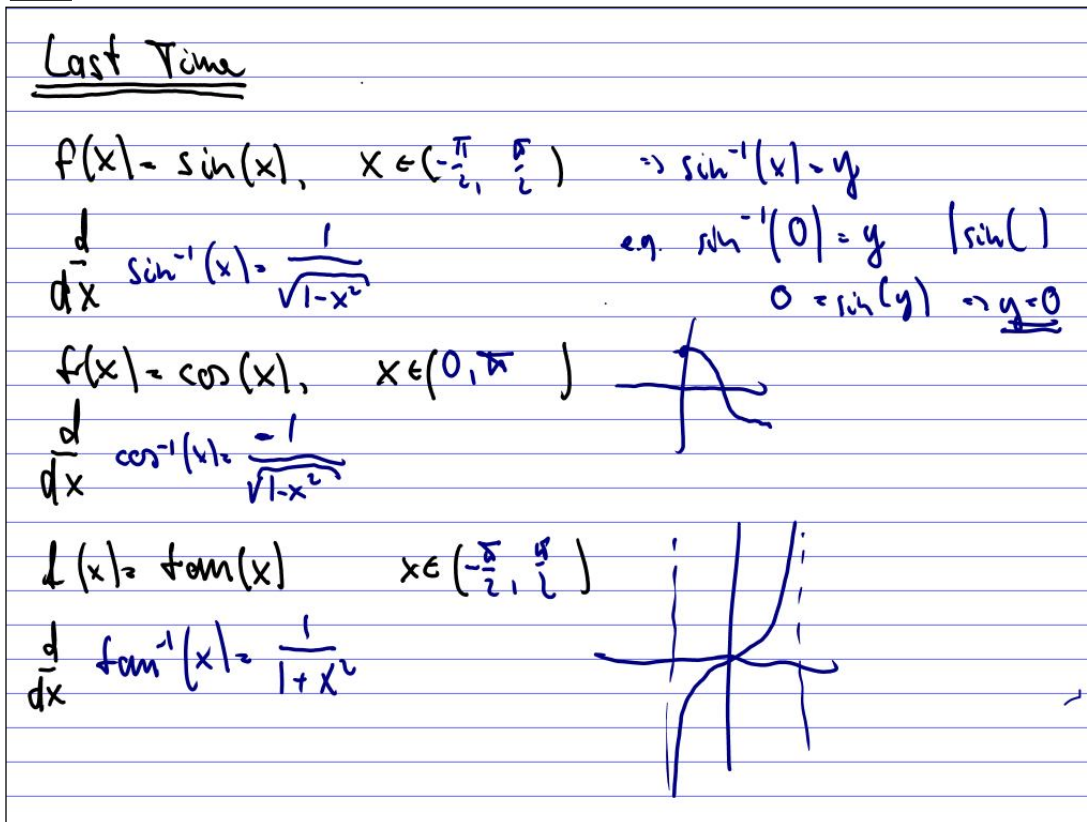 Last Time
f(x) = sin(x), x ∈ (-π/2, π/2) ⇒ sin⁻¹(x) = y
d/dx sin⁻¹(x) = 1/√(1-x²) e.g. sin⁻¹(0) = y | sin( )
0 = sin(y) ⇒ y = 0
f(x) = cos(x), x ∈ (0, π )
d/dx cos⁻¹(x) = -1/√(1-x²)
f(x) = tan(x) x ∈ (-π/2, π/2)
d/dx tan⁻¹(x) = 1/(1+x²)